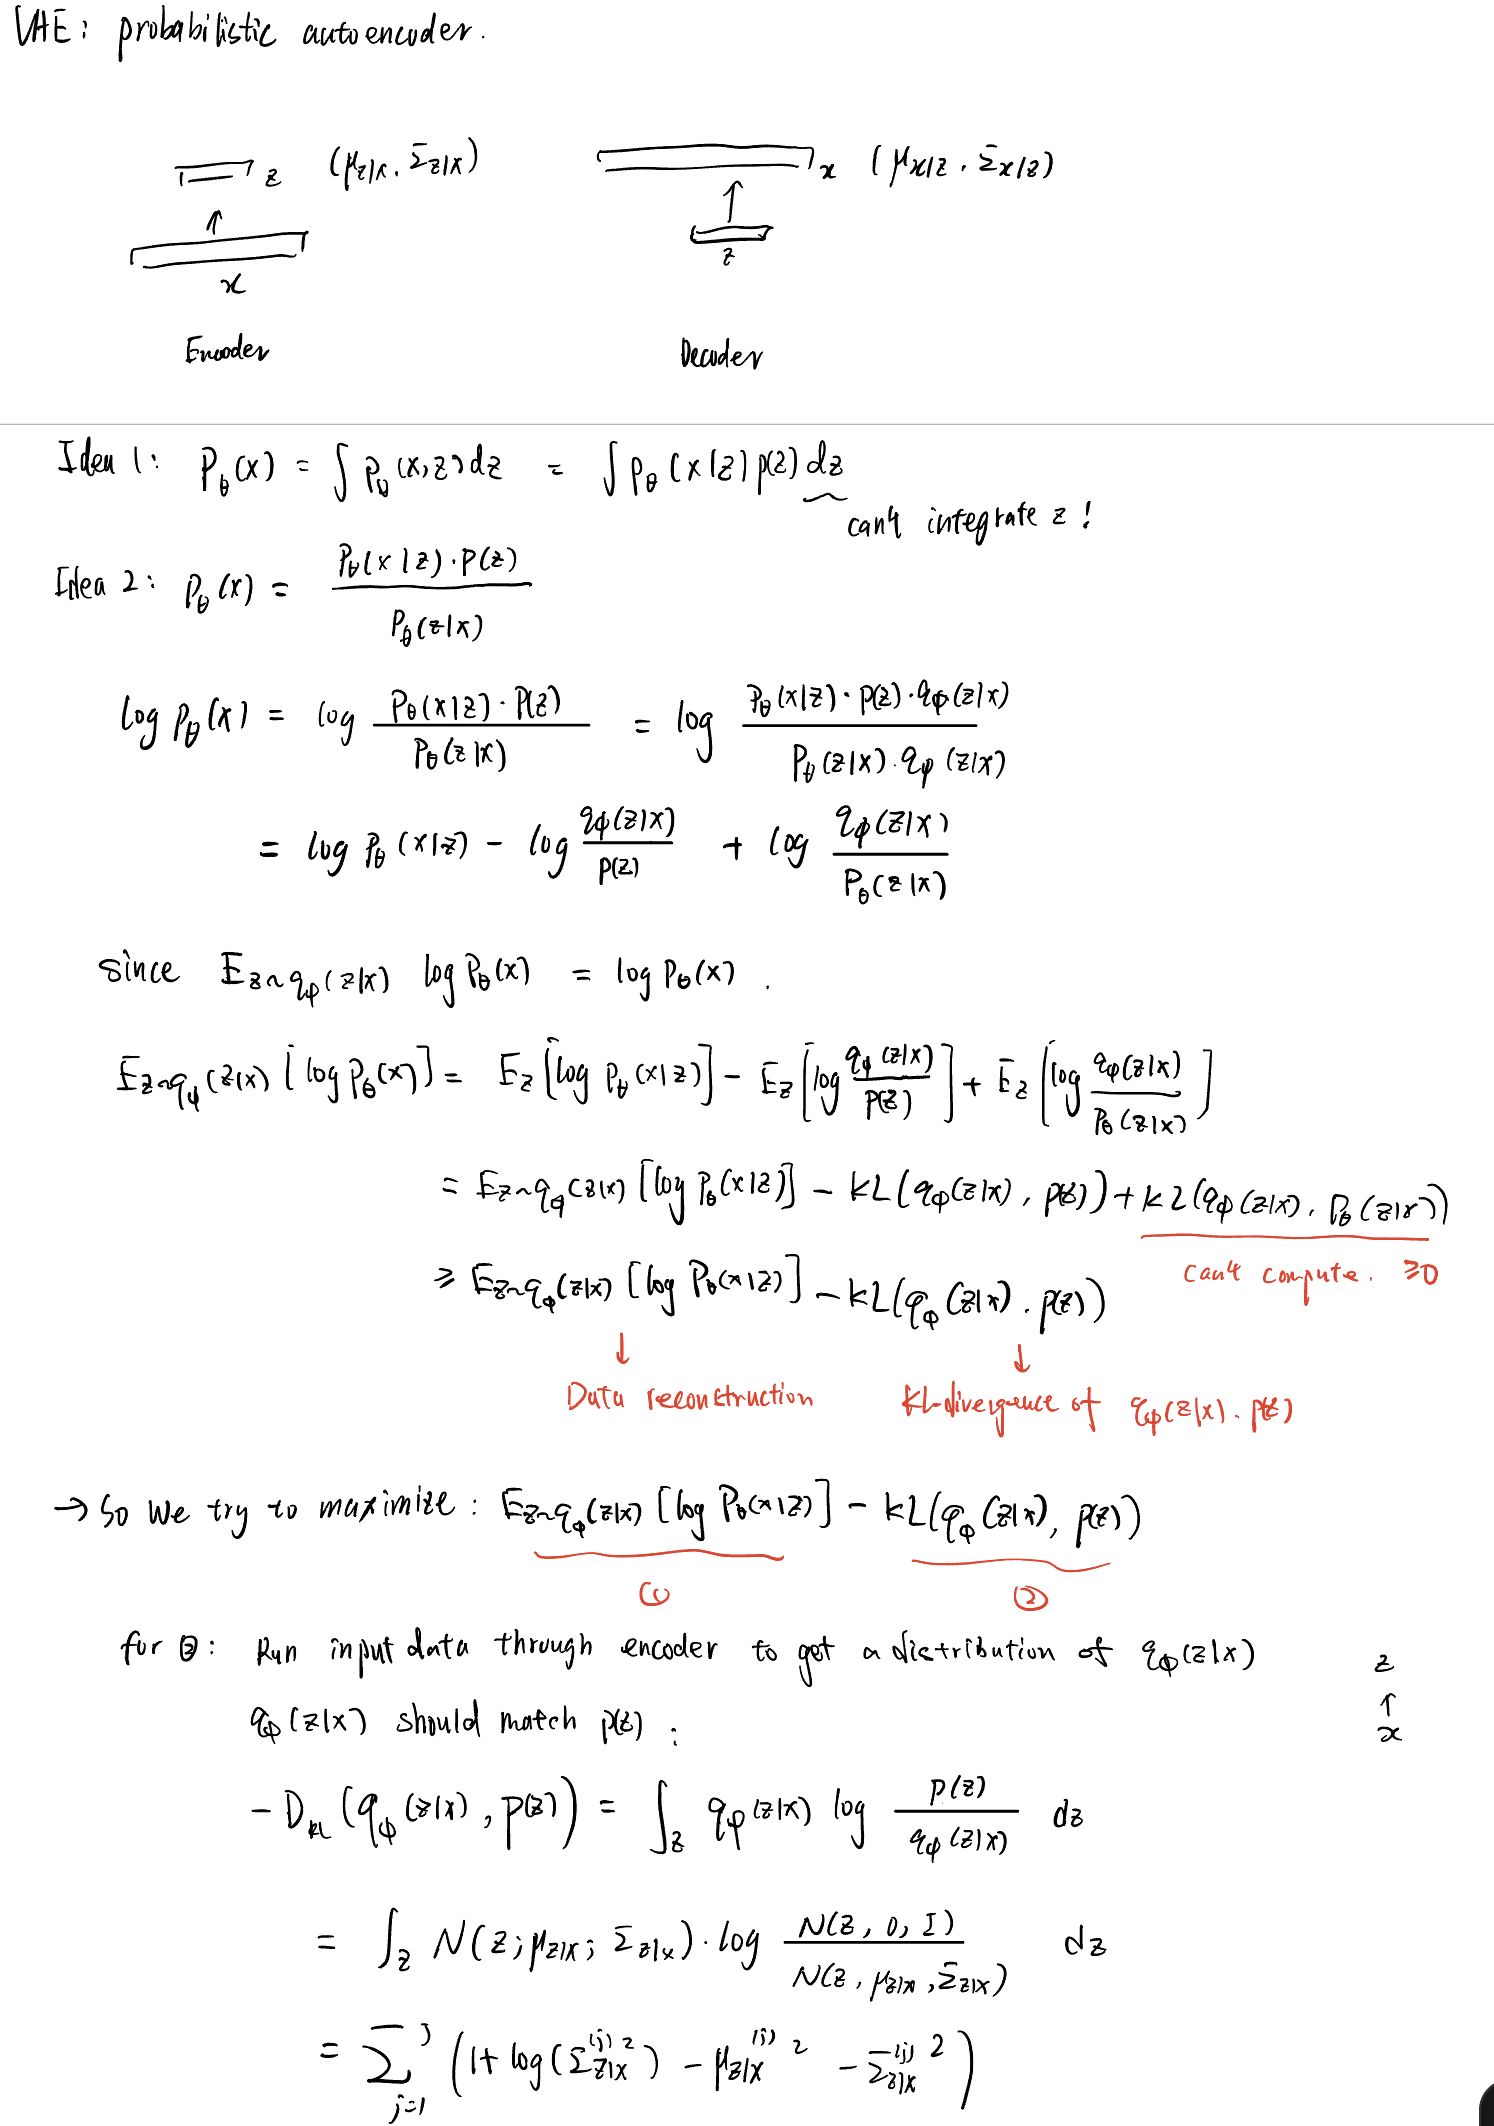 VAE: probabilistic autoencoder.
z (μz|x, Σz|x)
x (μx|z, Σx|z)
x
z
Encoder
Decoder
Idea 1: Pθ(x) = ∫ Pθ(x,z)dz = ∫ Pθ(x|z)p(z)dz
can't integrate z!
Idea 2: Pθ(x) = Pθ(x|z)·P(z) / Pθ(z|x)
log Pθ(x) = log Pθ(x|z)·P(z) / Pθ(z|x) = log Pθ(x|z)·P(z)·qφ(z|x) / Pθ(z|x)·qφ(z|x)
= log Pθ(x|z) - log qφ(z|x) / P(z) + log qφ(z|x) / Pθ(z|x)
since Ez~qφ(z|x) log Pθ(x) = log Pθ(x).
Ez~qφ(z|x) [log Pθ(x)] = Ez[log Pθ(x|z)] - Ez[log qφ(z|x) / P(z)] + Ez[log qφ(z|x) / Pθ(z|x)]
= Ez~qφ(z|x) [log Pθ(x|z)] - KL(qφ(z|x), p(z)) + KL(qφ(z|x), Pθ(z|x))
can't compute. ≥0
≥ Ez~qφ(z|x) [log Pθ(x|z)] - KL(qφ(z|x), p(z))
↓ ↓
Data reconstruction KL-divergence of qφ(z|x), p(z)
→ So We try to maximize: Ez~qφ(z|x) [log Pθ(x|z)] - KL(qφ(z|x), p(z))
① ②
for ②: Run input data through encoder to get a distribution of qφ(z|x)
z
↑
x
qφ(z|x) should match p(z):
-DKL(qφ(z|x), p(z)) = ∫z qφ(z|x) log p(z) / qφ(z|x) dz
= ∫z N(z; μz|x; Σz|x)·log N(z, 0, I) / N(z, μz|x, Σz|x) dz
= Σ J j=1 (1+ log(Σz|x(j)2) - μz|x(j)2 - Σz|x(j)2)